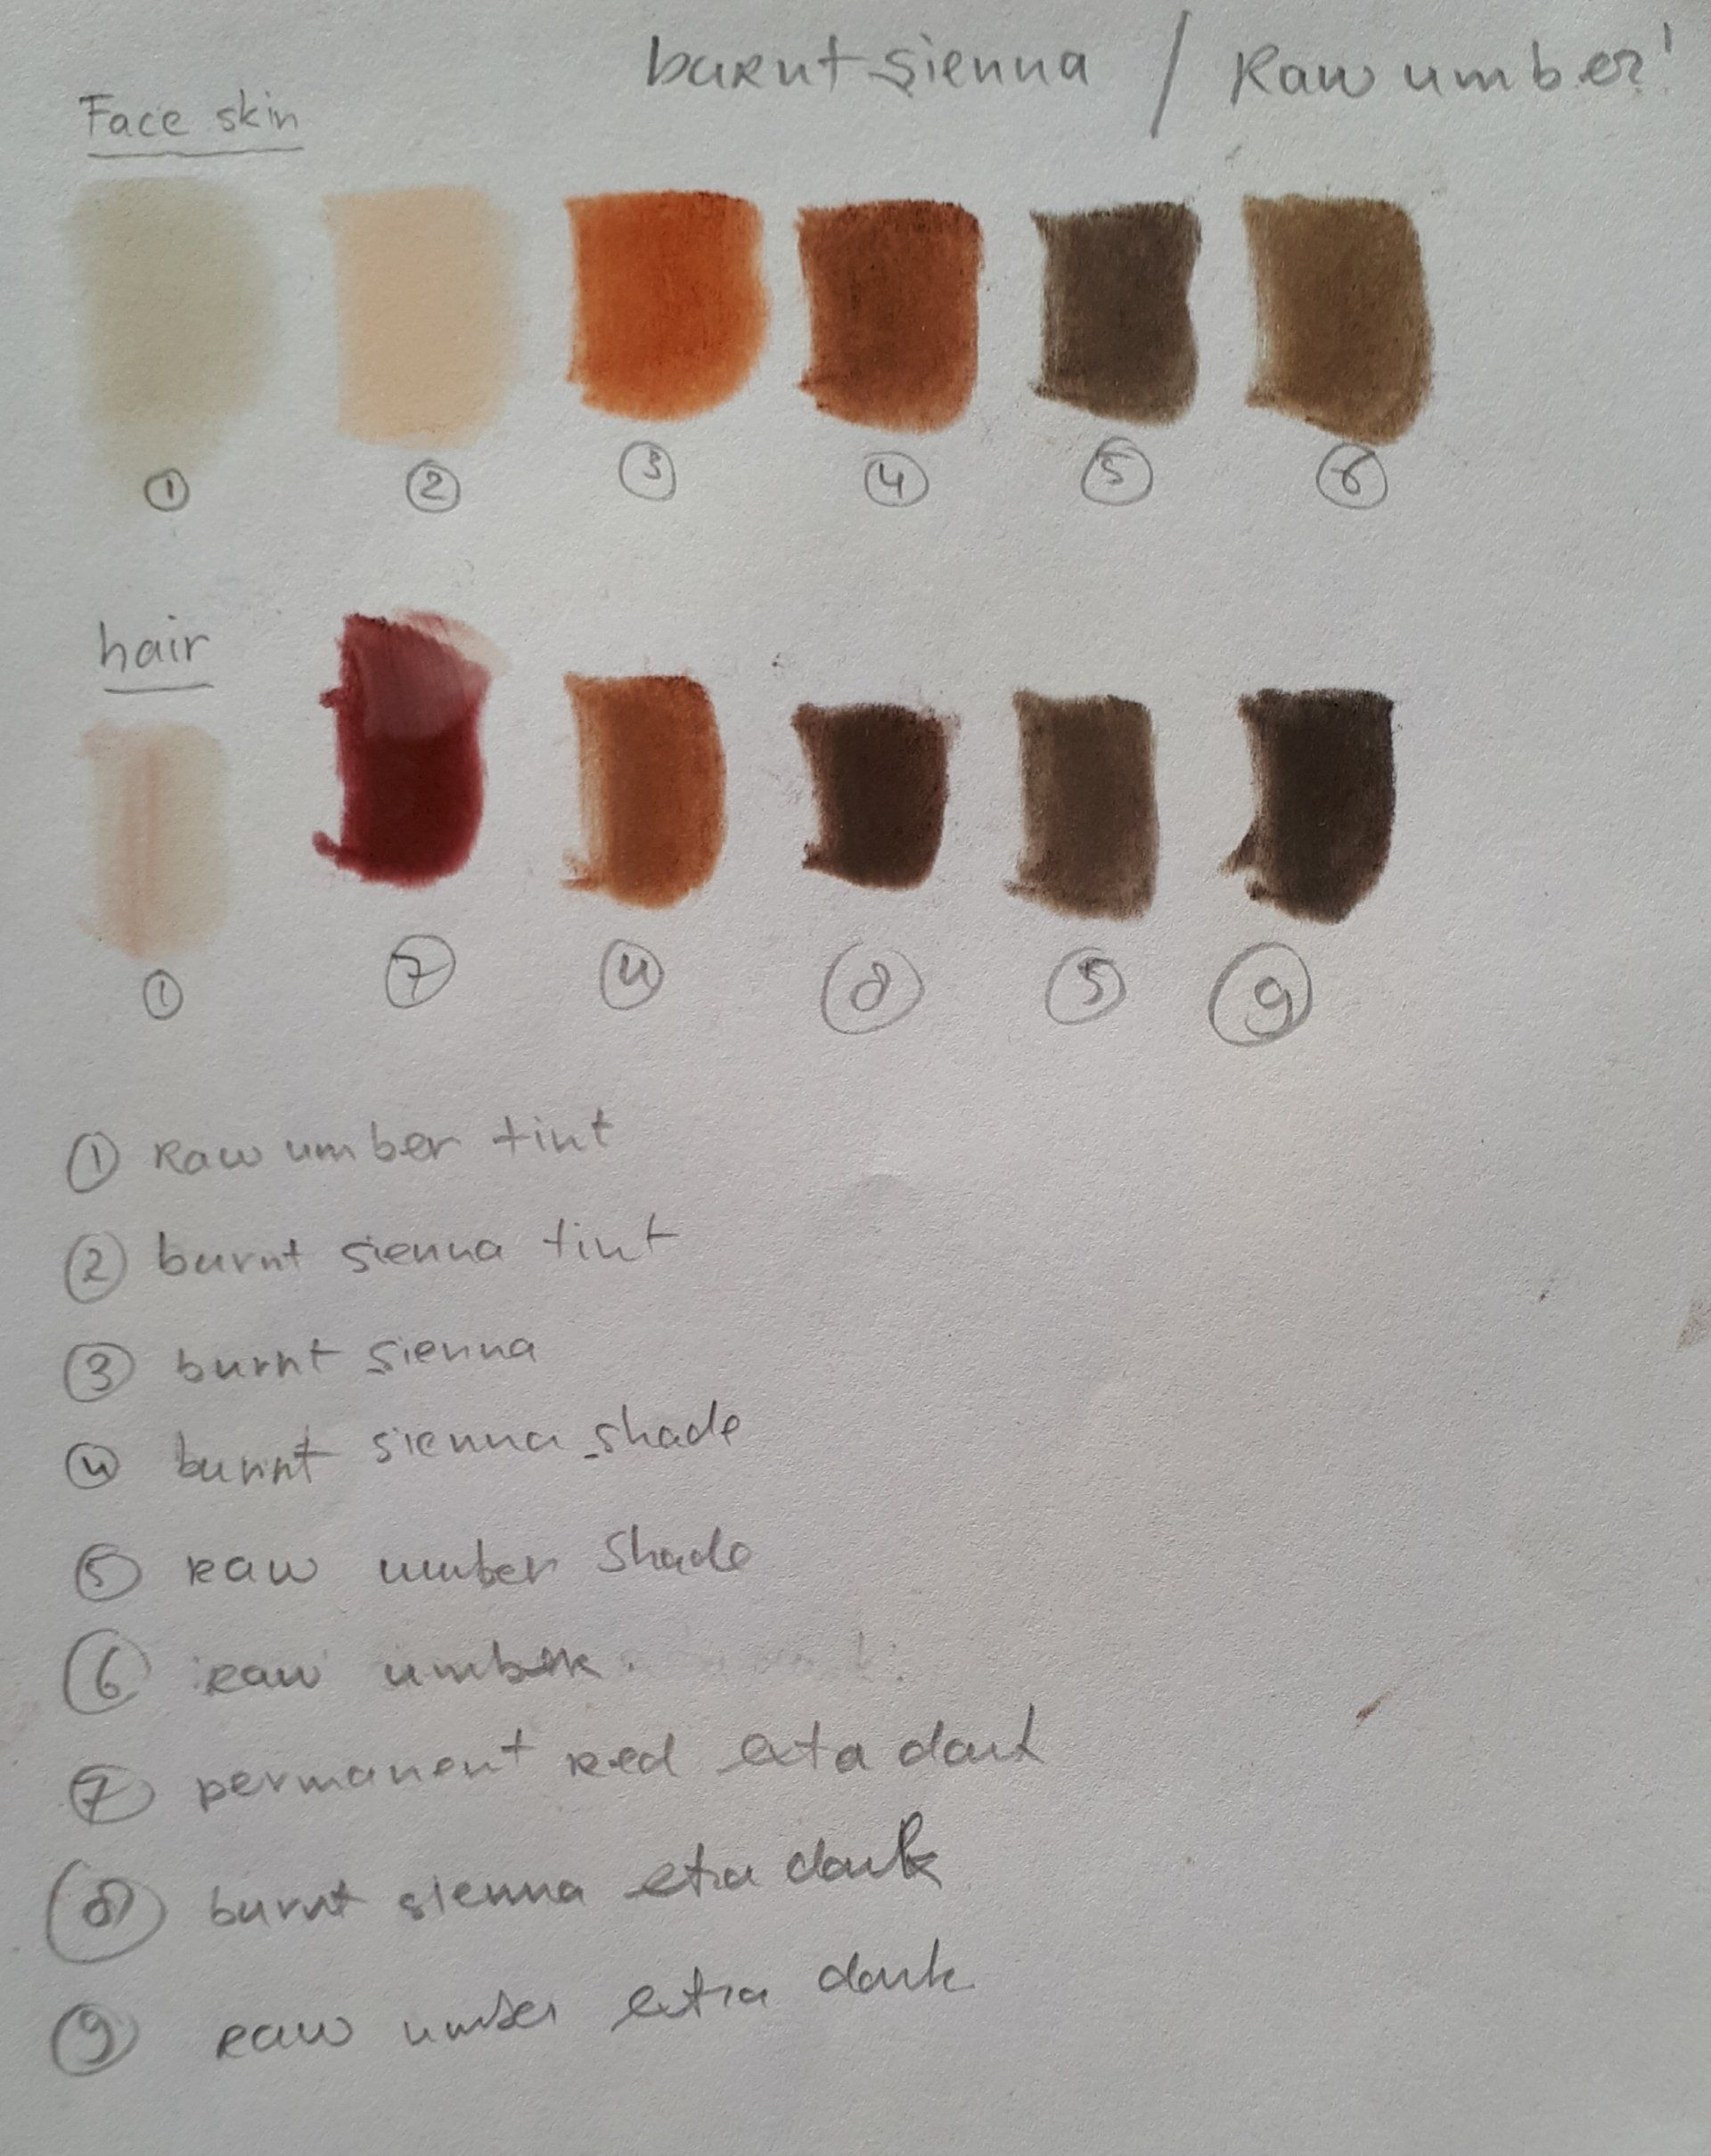 burnt sienna / Raw umber!
Face skin
① ② ③ ④ ⑤ ⑥
hair
① ⑦ ④ ⑧ ⑤ ⑨
① Raw umber tint
② burnt sienna tint
③ burnt sienna
④ burnt sienna shade
⑤ raw umber Shade
⑥ raw umber.
⑦ permanent red exta dark
⑧ burnt sienna etra dark
⑨ raw umber extra dark